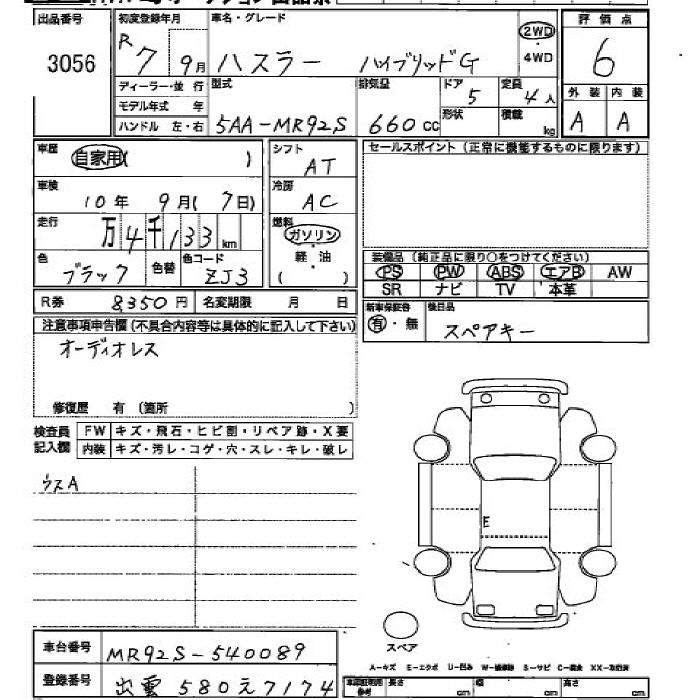 出品番号 初度登録年月 車名・グレード 評価点
3056 R7 9月 ハスラー ハイブリッドG 2WD 6
4WD
ディーラー・並 行 型式 排気量 ドア 定員
モデル年式 年 5 4人 外装 内装
ハンドル 左・右 5AA-MR92S 660cc 形状 積載 kg A A
車歴 自家用( ) シフト AT セールスポイント(正常に機能するものに限ります)
車検 10年 9月(7日) 冷房 AC
走行 万4千133km 燃料 ガソリン
軽油
( )
色 ブラック 色替 色コード ZJ3
装備品(純正品に限り○をつけてください)
PS PW ABS エアB AW
SR ナビ TV 本革
R券 8,350円 名変期限 月 日
新車保証書 有・無 後日品 スペアキー
注意事項申告欄(不具合内容等は具体的に記入して下さい)
オーディオレス
修復歴 有(箇所 )
検査員 FW キズ・飛石・ヒビ割・リペア跡・X要
記入欄 内装 キズ・汚レ・コゲ・穴・スレ・キレ・破レ
ウスA
E
スペア
車台番号 MR92S-540089
登録番号 出雲580え7174
A-キズ E-エクボ U-凹み S-サビ
長さ cm 幅 cm 高さ cm